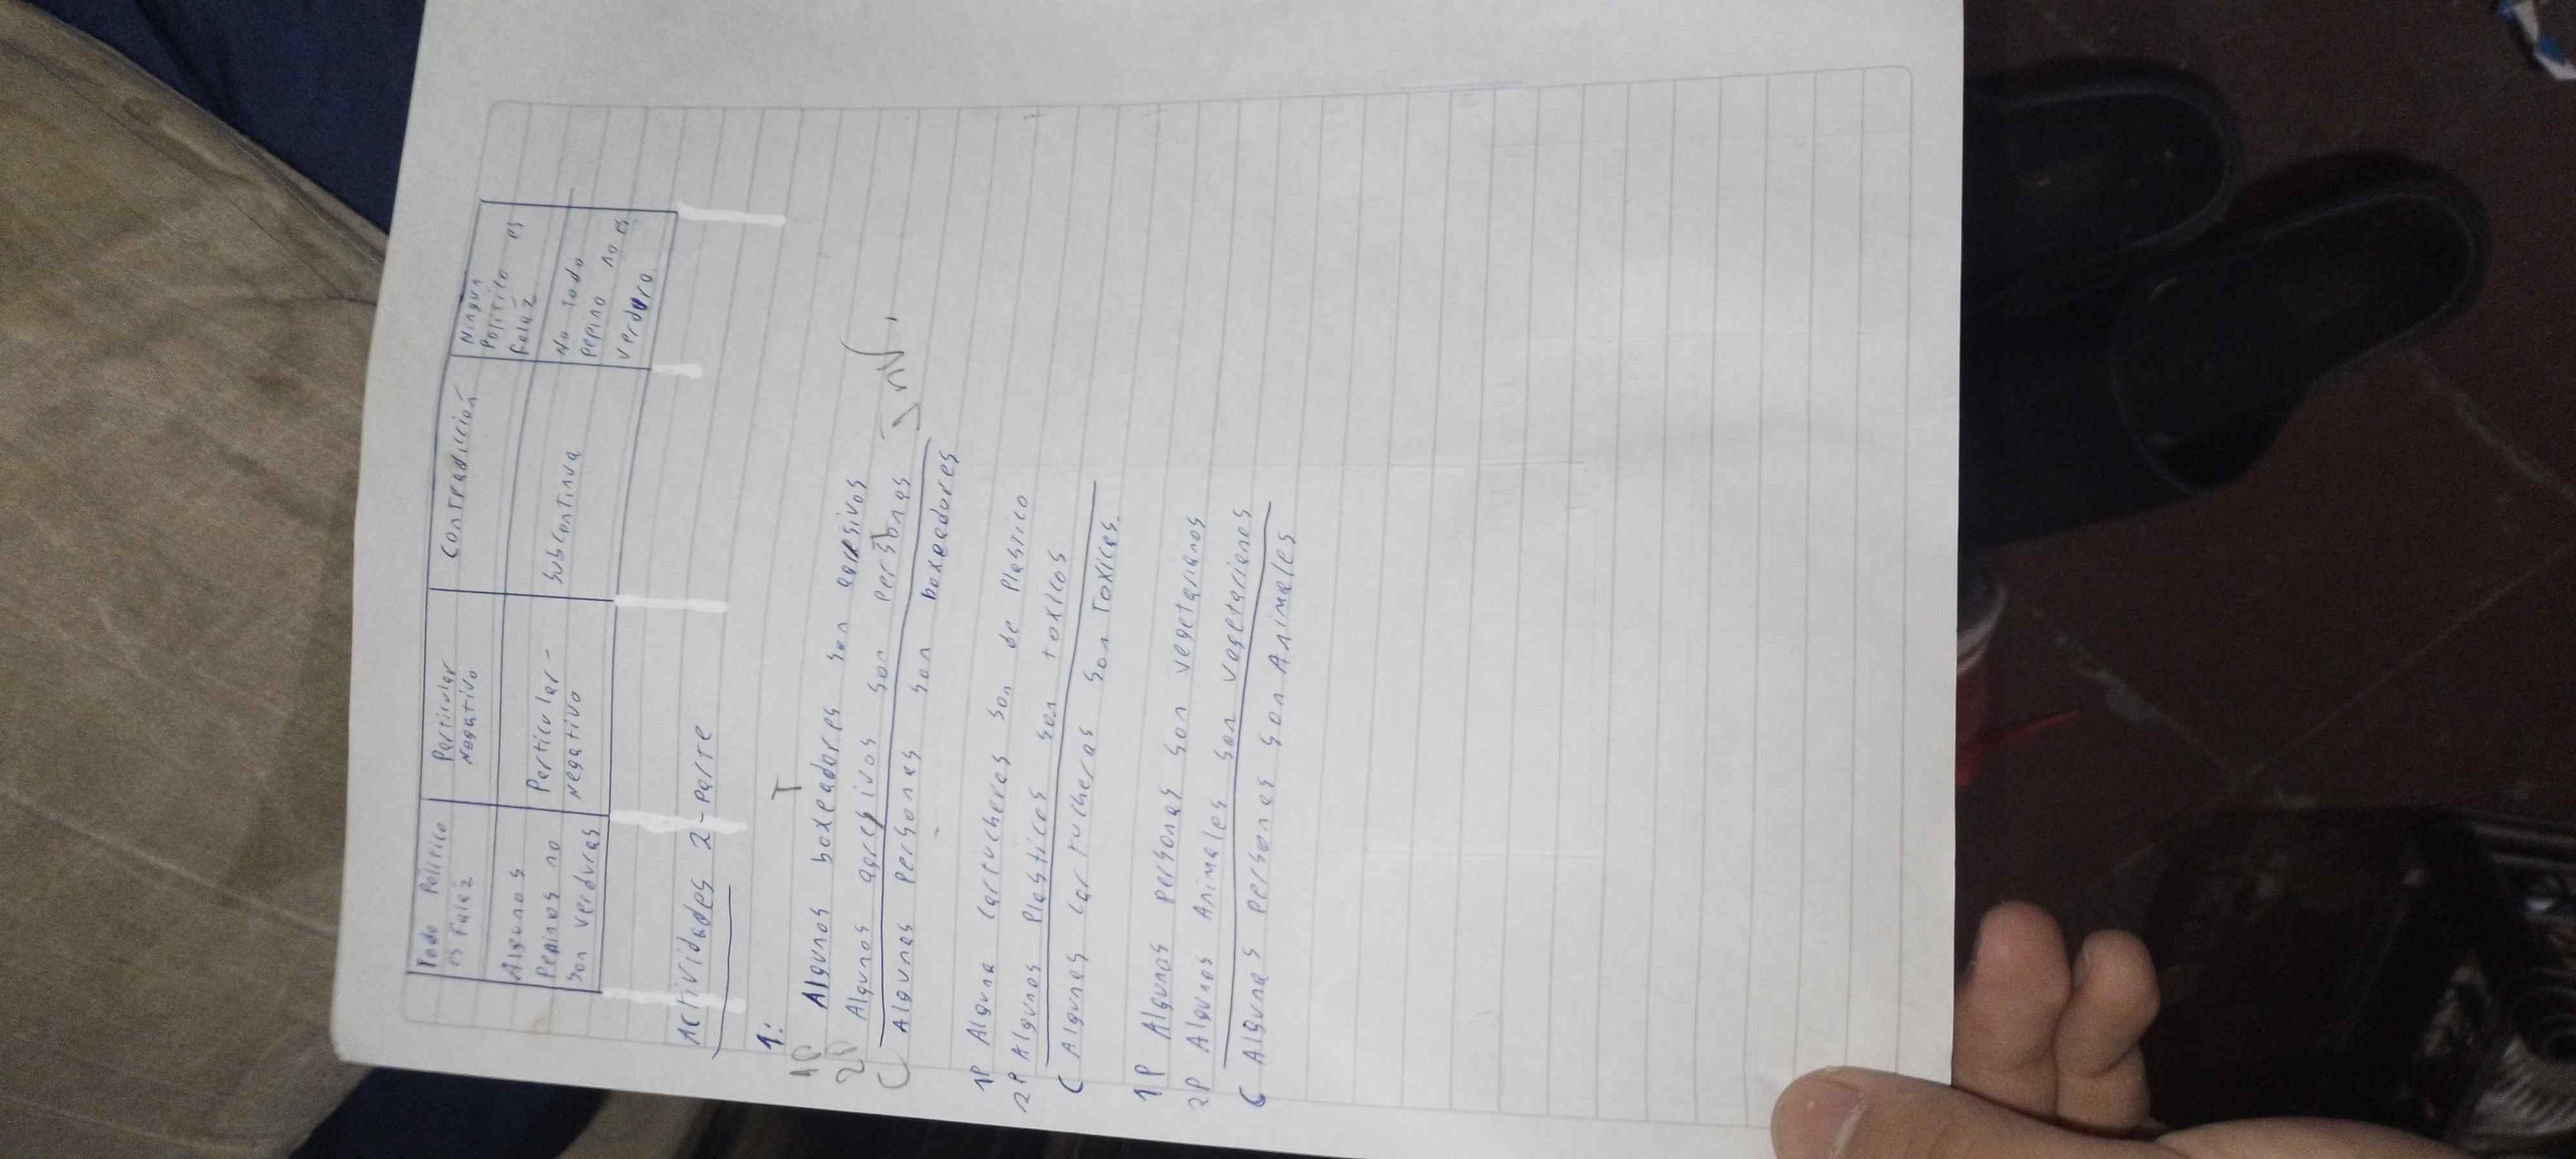 Todo Político es Falaz
Particular Negativo
Contradicción
Ningun Político es Falaz
Algunos Pepinos no son verduras
Particular-Negativo
Subcontinua
No todo pepino no es verdura.
Actividades 2-Parte
1:
1P Algunos boxeadores son agresivos
2P Algunos agresivos son personas
C Algunas personas son boxeadores
1P Alguna cartucheras son de Plastico
2P Algunos Plasticos son toxicos
C Algunas cartucheras son Toxicas.
1P Algunas personas son vegetarianos
2P Algunos Animales son vegetarianos
C Algunas personas son Animales